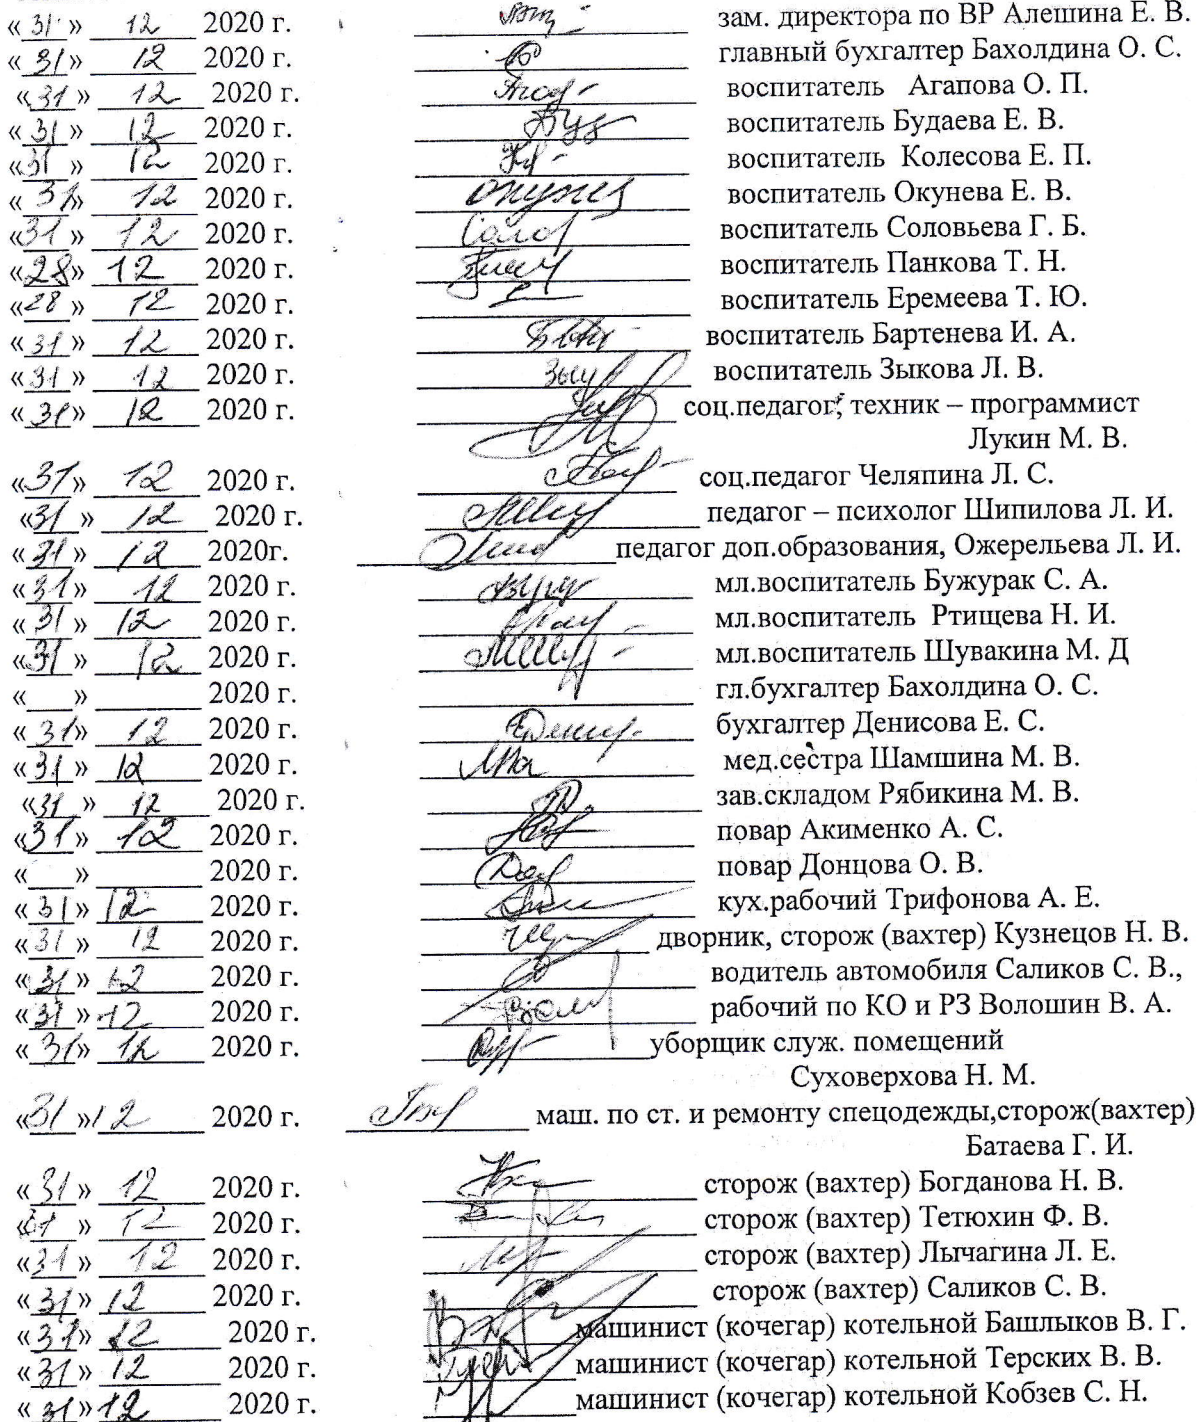 «31» 12 2020 г. зам. директора по ВР Алешина Е. В.
«31» 12 2020 г. главный бухгалтер Бахолдина О. С.
«31» 12 2020 г. воспитатель Агапова О. П.
«31» 12 2020 г. воспитатель Будаева Е. В.
«31» 12 2020 г. воспитатель Колесова Е. П.
«31» 12 2020 г. воспитатель Окунева Е. В.
«31» 12 2020 г. воспитатель Соловьева Г. Б.
«28» 12 2020 г. воспитатель Панкова Т. Н.
«28» 12 2020 г. воспитатель Еремеева Т. Ю.
«31» 12 2020 г. воспитатель Бартенева И. А.
«31» 12 2020 г. воспитатель Зыкова Л. В.
«31» 12 2020 г. соц.педагог, техник – программист
Лукин М. В.
«31» 12 2020 г. соц.педагог Челяпина Л. С.
«31» 12 2020 г. педагог – психолог Шипилова Л. И.
«31» 12 2020г. педагог доп.образования, Ожерельева Л. И.
«31» 12 2020 г. мл.воспитатель Бужурак С. А.
«31» 12 2020 г. мл.воспитатель Ртищева Н. И.
«31» 12 2020 г. мл.воспитатель Шувакина М. Д
«___» ________ 2020 г. гл.бухгалтер Бахолдина О. С.
«31» 12 2020 г. бухгалтер Денисова Е. С.
«31» 12 2020 г. мед.сестра Шамшина М. В.
«31» 12 2020 г. зав.складом Рябикина М. В.
«31» 12 2020 г. повар Акименко А. С.
«___» ________ 2020 г. повар Донцова О. В.
«31» 12 2020 г. кух.рабочий Трифонова А. Е.
«31» 12 2020 г. дворник, сторож (вахтер) Кузнецов Н. В.
«31» 12 2020 г. водитель автомобиля Саликов С. В.,
«31» 12 2020 г. рабочий по КО и РЗ Волошин В. А.
«31» 12 2020 г. уборщик служ. помещений
Суховерхова Н. М.
«31» 12 2020 г. маш. по ст. и ремонту спецодежды,сторож(вахтер)
Батаева Г. И.
«31» 12 2020 г. сторож (вахтер) Богданова Н. В.
«31» 12 2020 г. сторож (вахтер) Тетюхин Ф. В.
«31» 12 2020 г. сторож (вахтер) Лычагина Л. Е.
«31» 12 2020 г. сторож (вахтер) Саликов С. В.
«31» 12 2020 г. машинист (кочегар) котельной Башлыков В. Г.
«31» 12 2020 г. машинист (кочегар) котельной Терских В. В.
«31» 12 2020 г. машинист (кочегар) котельной Кобзев С. Н.